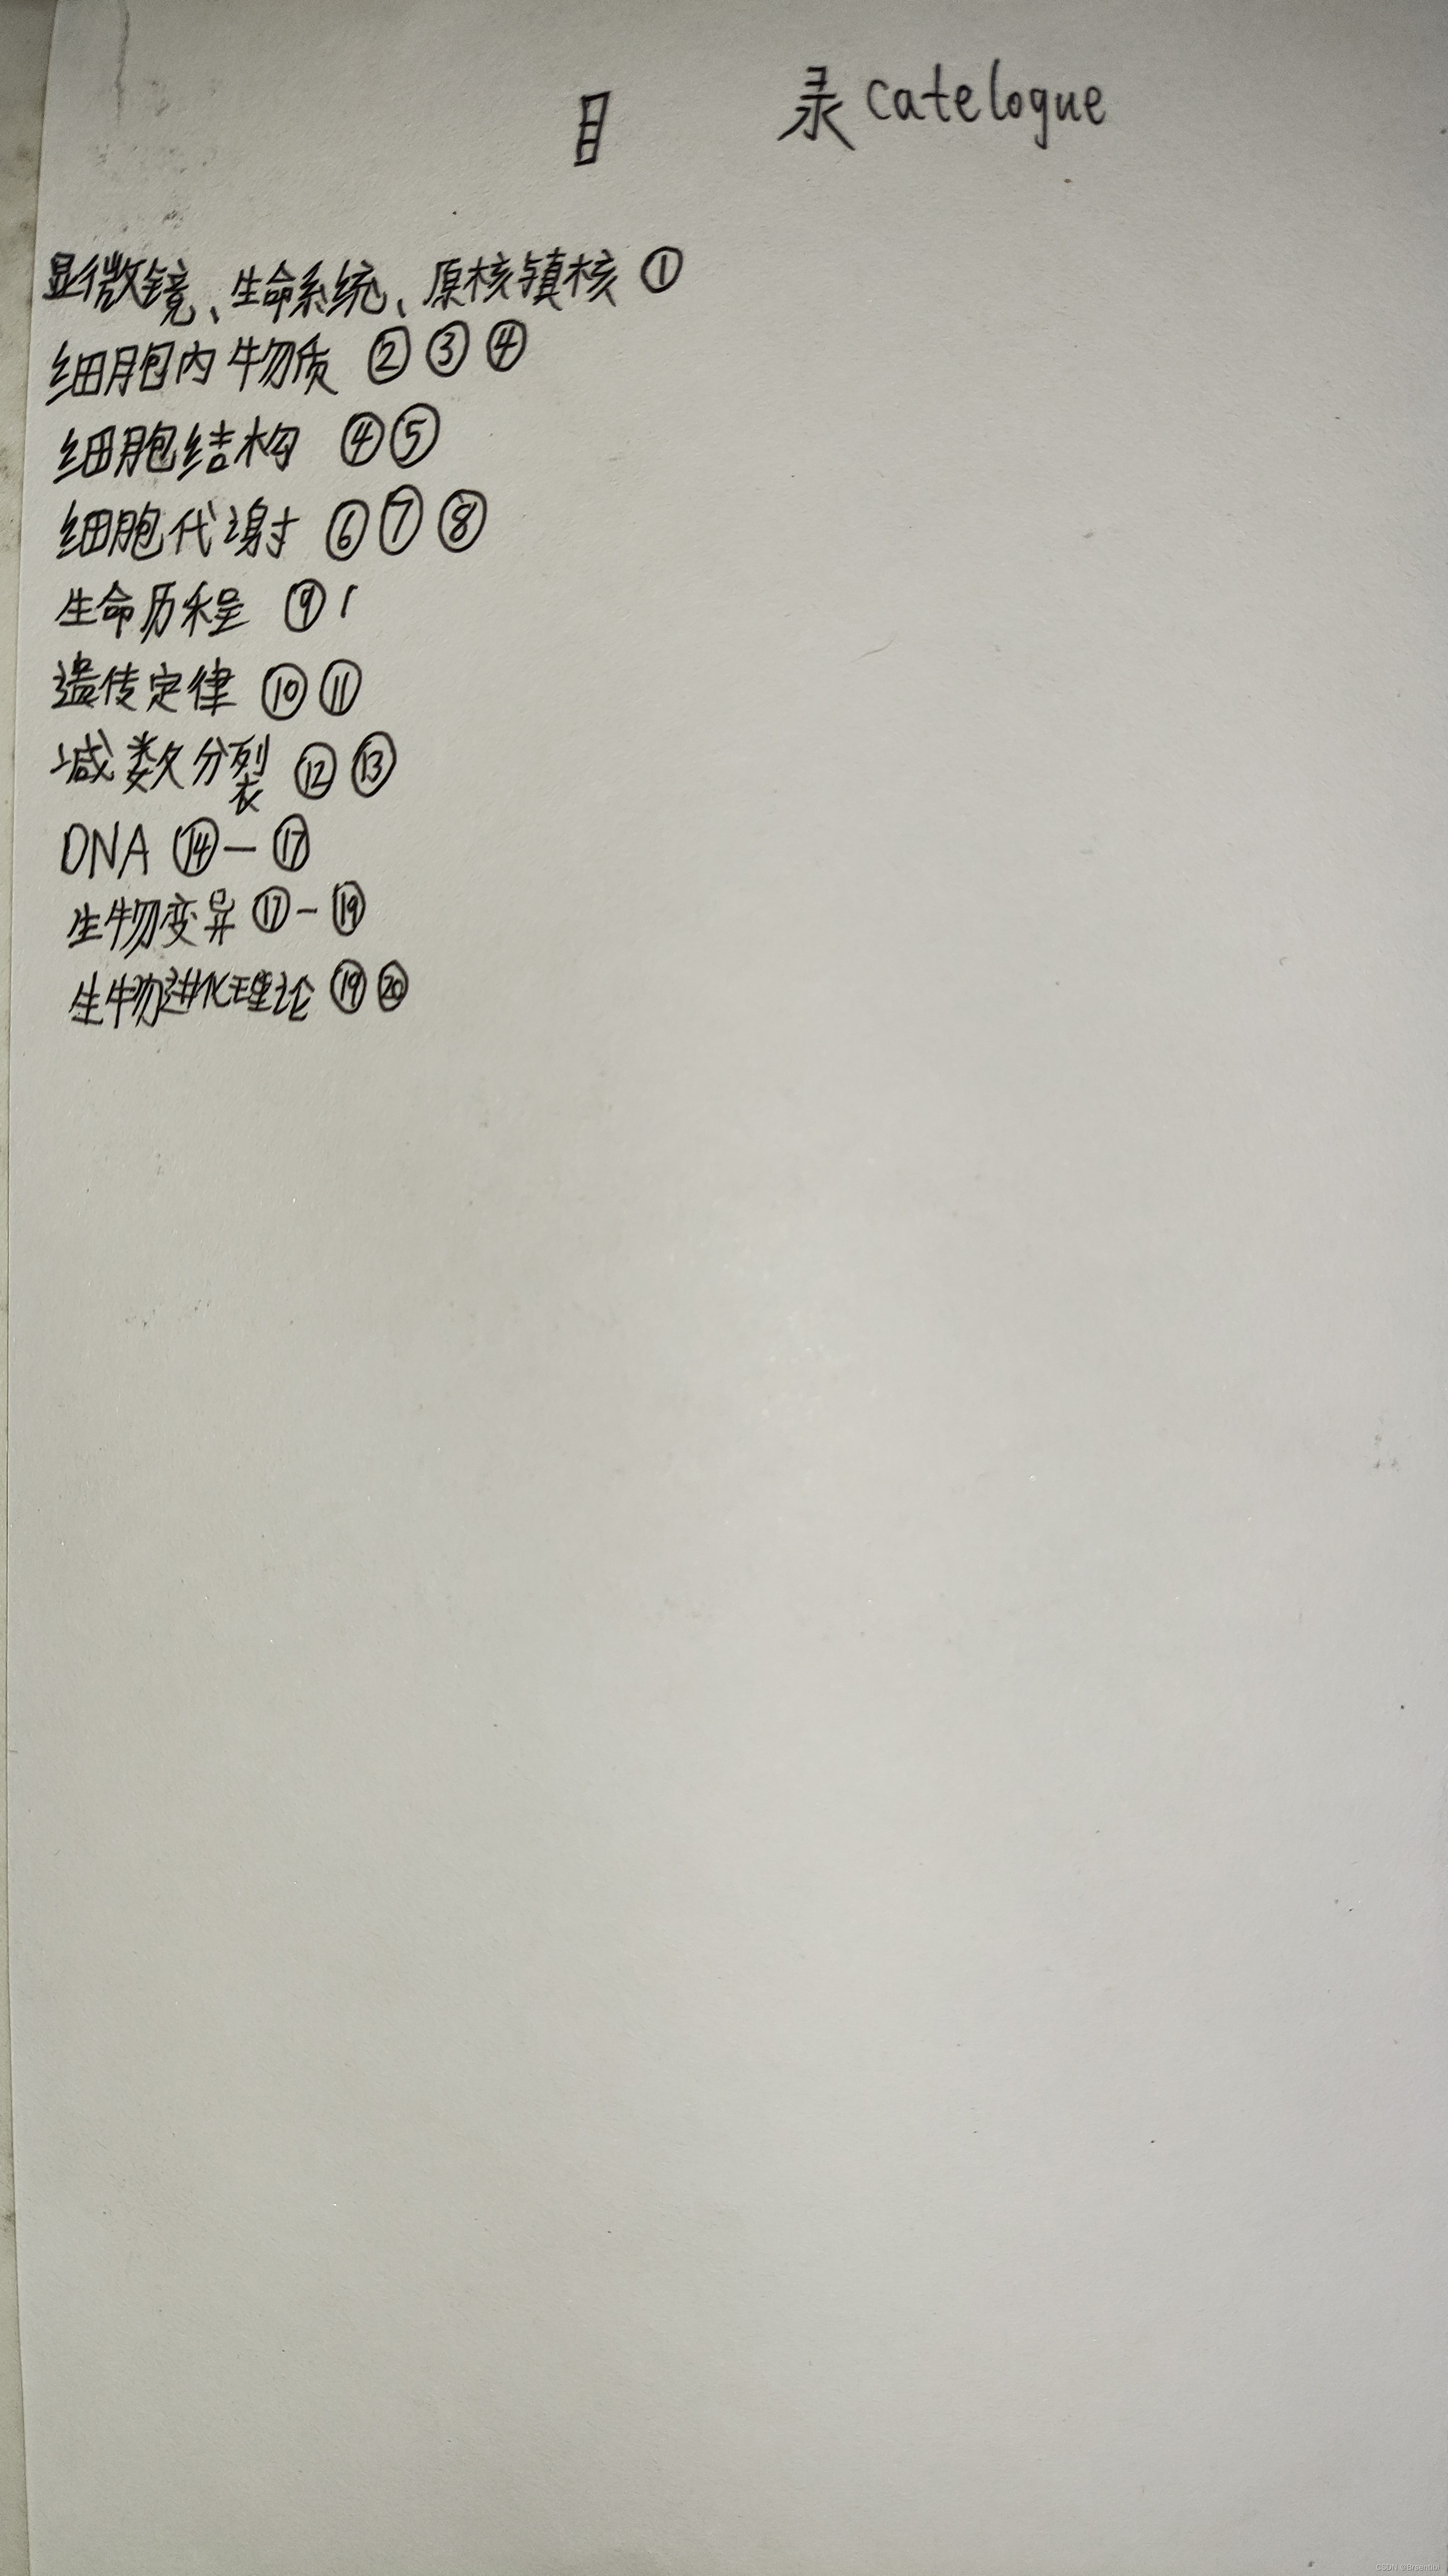 目 录 catelogue
显微镜、生命系统、原核镇核 ①
细胞内物质 ② ③ ④
细胞结构 ④⑤
细胞代谢 ⑥⑦⑧
生命历程 ⑨
遗传定律 ⑩⑪
减数分裂 ⑫⑬
DNA ⑭—⑰
生物变异 ⑰-⑲
生物进化理论 ⑲⑳